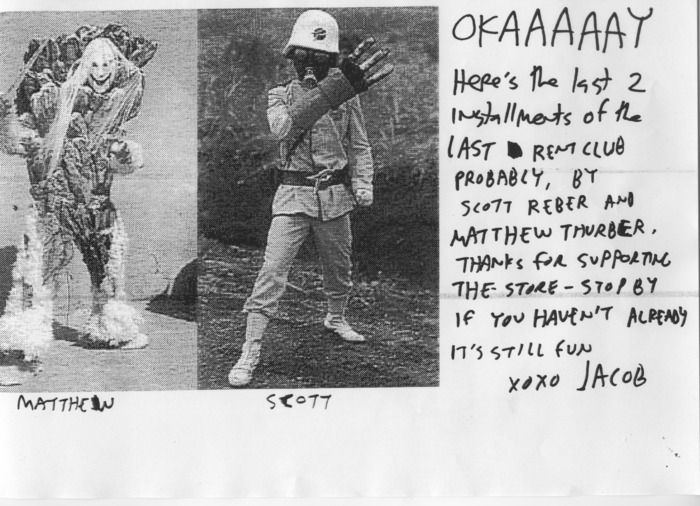 OKAAAAAAY
Here's the last 2
installments of the
LAST RENT CLUB
PROBABLY, BY
SCOTT REBER AND
MATTHEW THURBER.
THANKS FOR SUPPORTING
THE STORE - STOP BY
IF YOU HAVEN'T ALREADY
IT'S STILL FUN
XOXO JACOB
MATTHEW
SCOTT